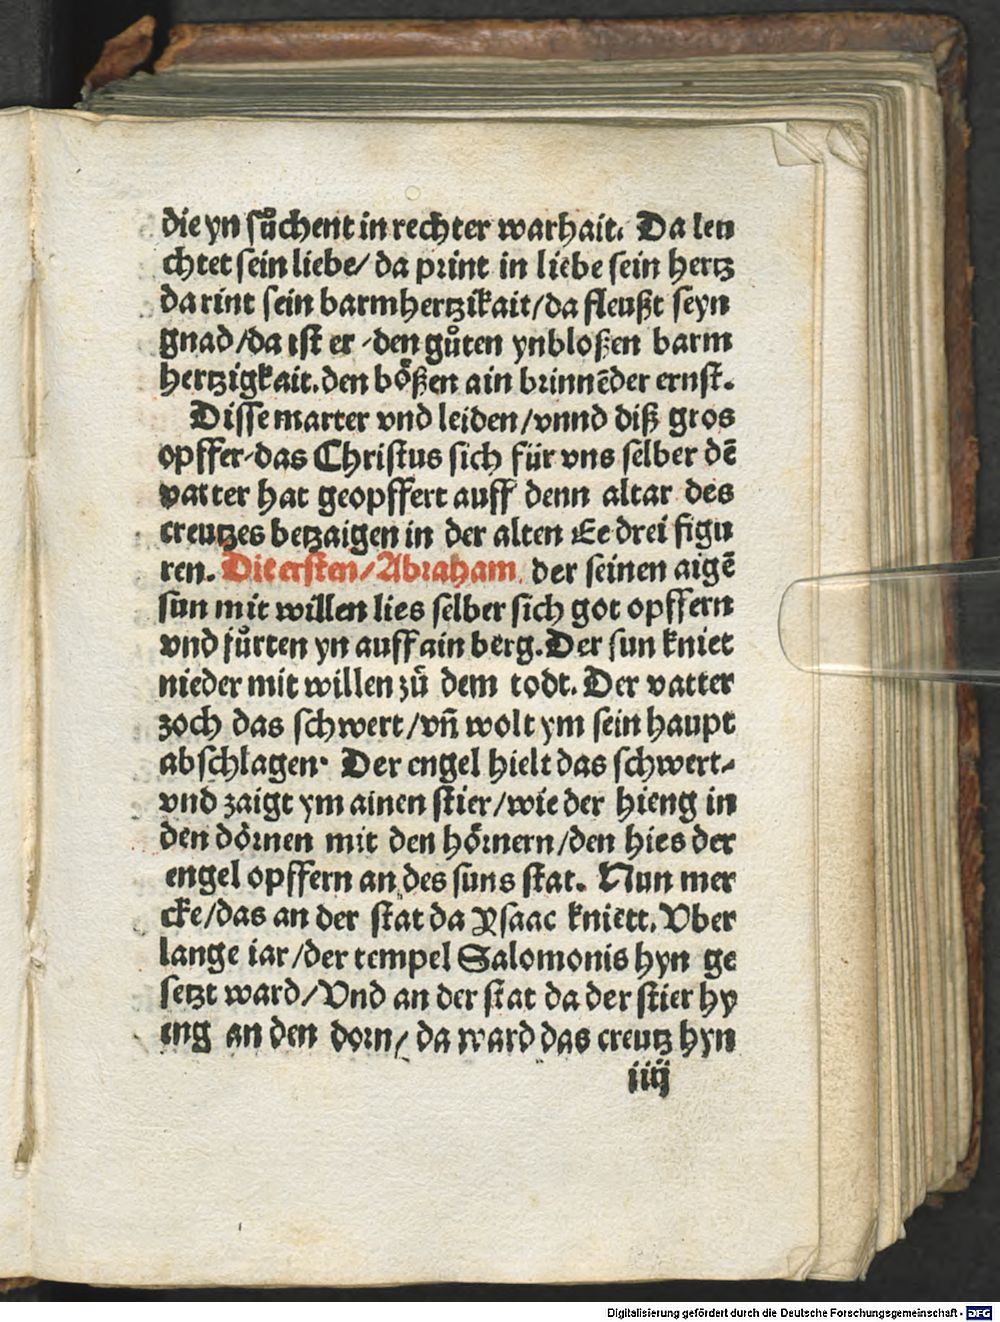 die yn sůchent in rechter warhait. Da leu
chtet sein liebe/ da print in liebe sein hertz
da rint sein barmhertzikait/da fleußt seyn
gnad/da ist er den gůten ynbloßen barm
hertzigkait.den bößen ain brinnēder ernst.
Disse marter vnd leiden/vnnd diß gros
opffer das Christus sich für vns selber dē
vatter hat geopffert auff denn altar des
creutzes betzaigen in der alten Ee drei figu
ren. Die ersten/Abraham. der seinen aigē
sun mit willen lies selber sich got opffern
vnd fůrten yn auff ain berg.Der sun kniet
nieder mit willen zů dem todt. Der vatter
zoch das schwert/vñ wolt ym sein haupt
abschlagen. Der engel hielt das schwert
vnd zaigt ym ainen stier/wie der hieng in
den dörnen mit den hörnern/den hies der
engel opffern an des suns stat. Nun mer
cke/das an der stat da Ysaac kniett. Vber
lange iar/der tempel Salomonis hyn ge
setzt ward/Vnd an der stat da der stier hy
eng an den dorn/ da ward das creutz hyn
iiij
Digitalisierung gefördert durch die Deutsche Forschungsgemeinschaft - DFG